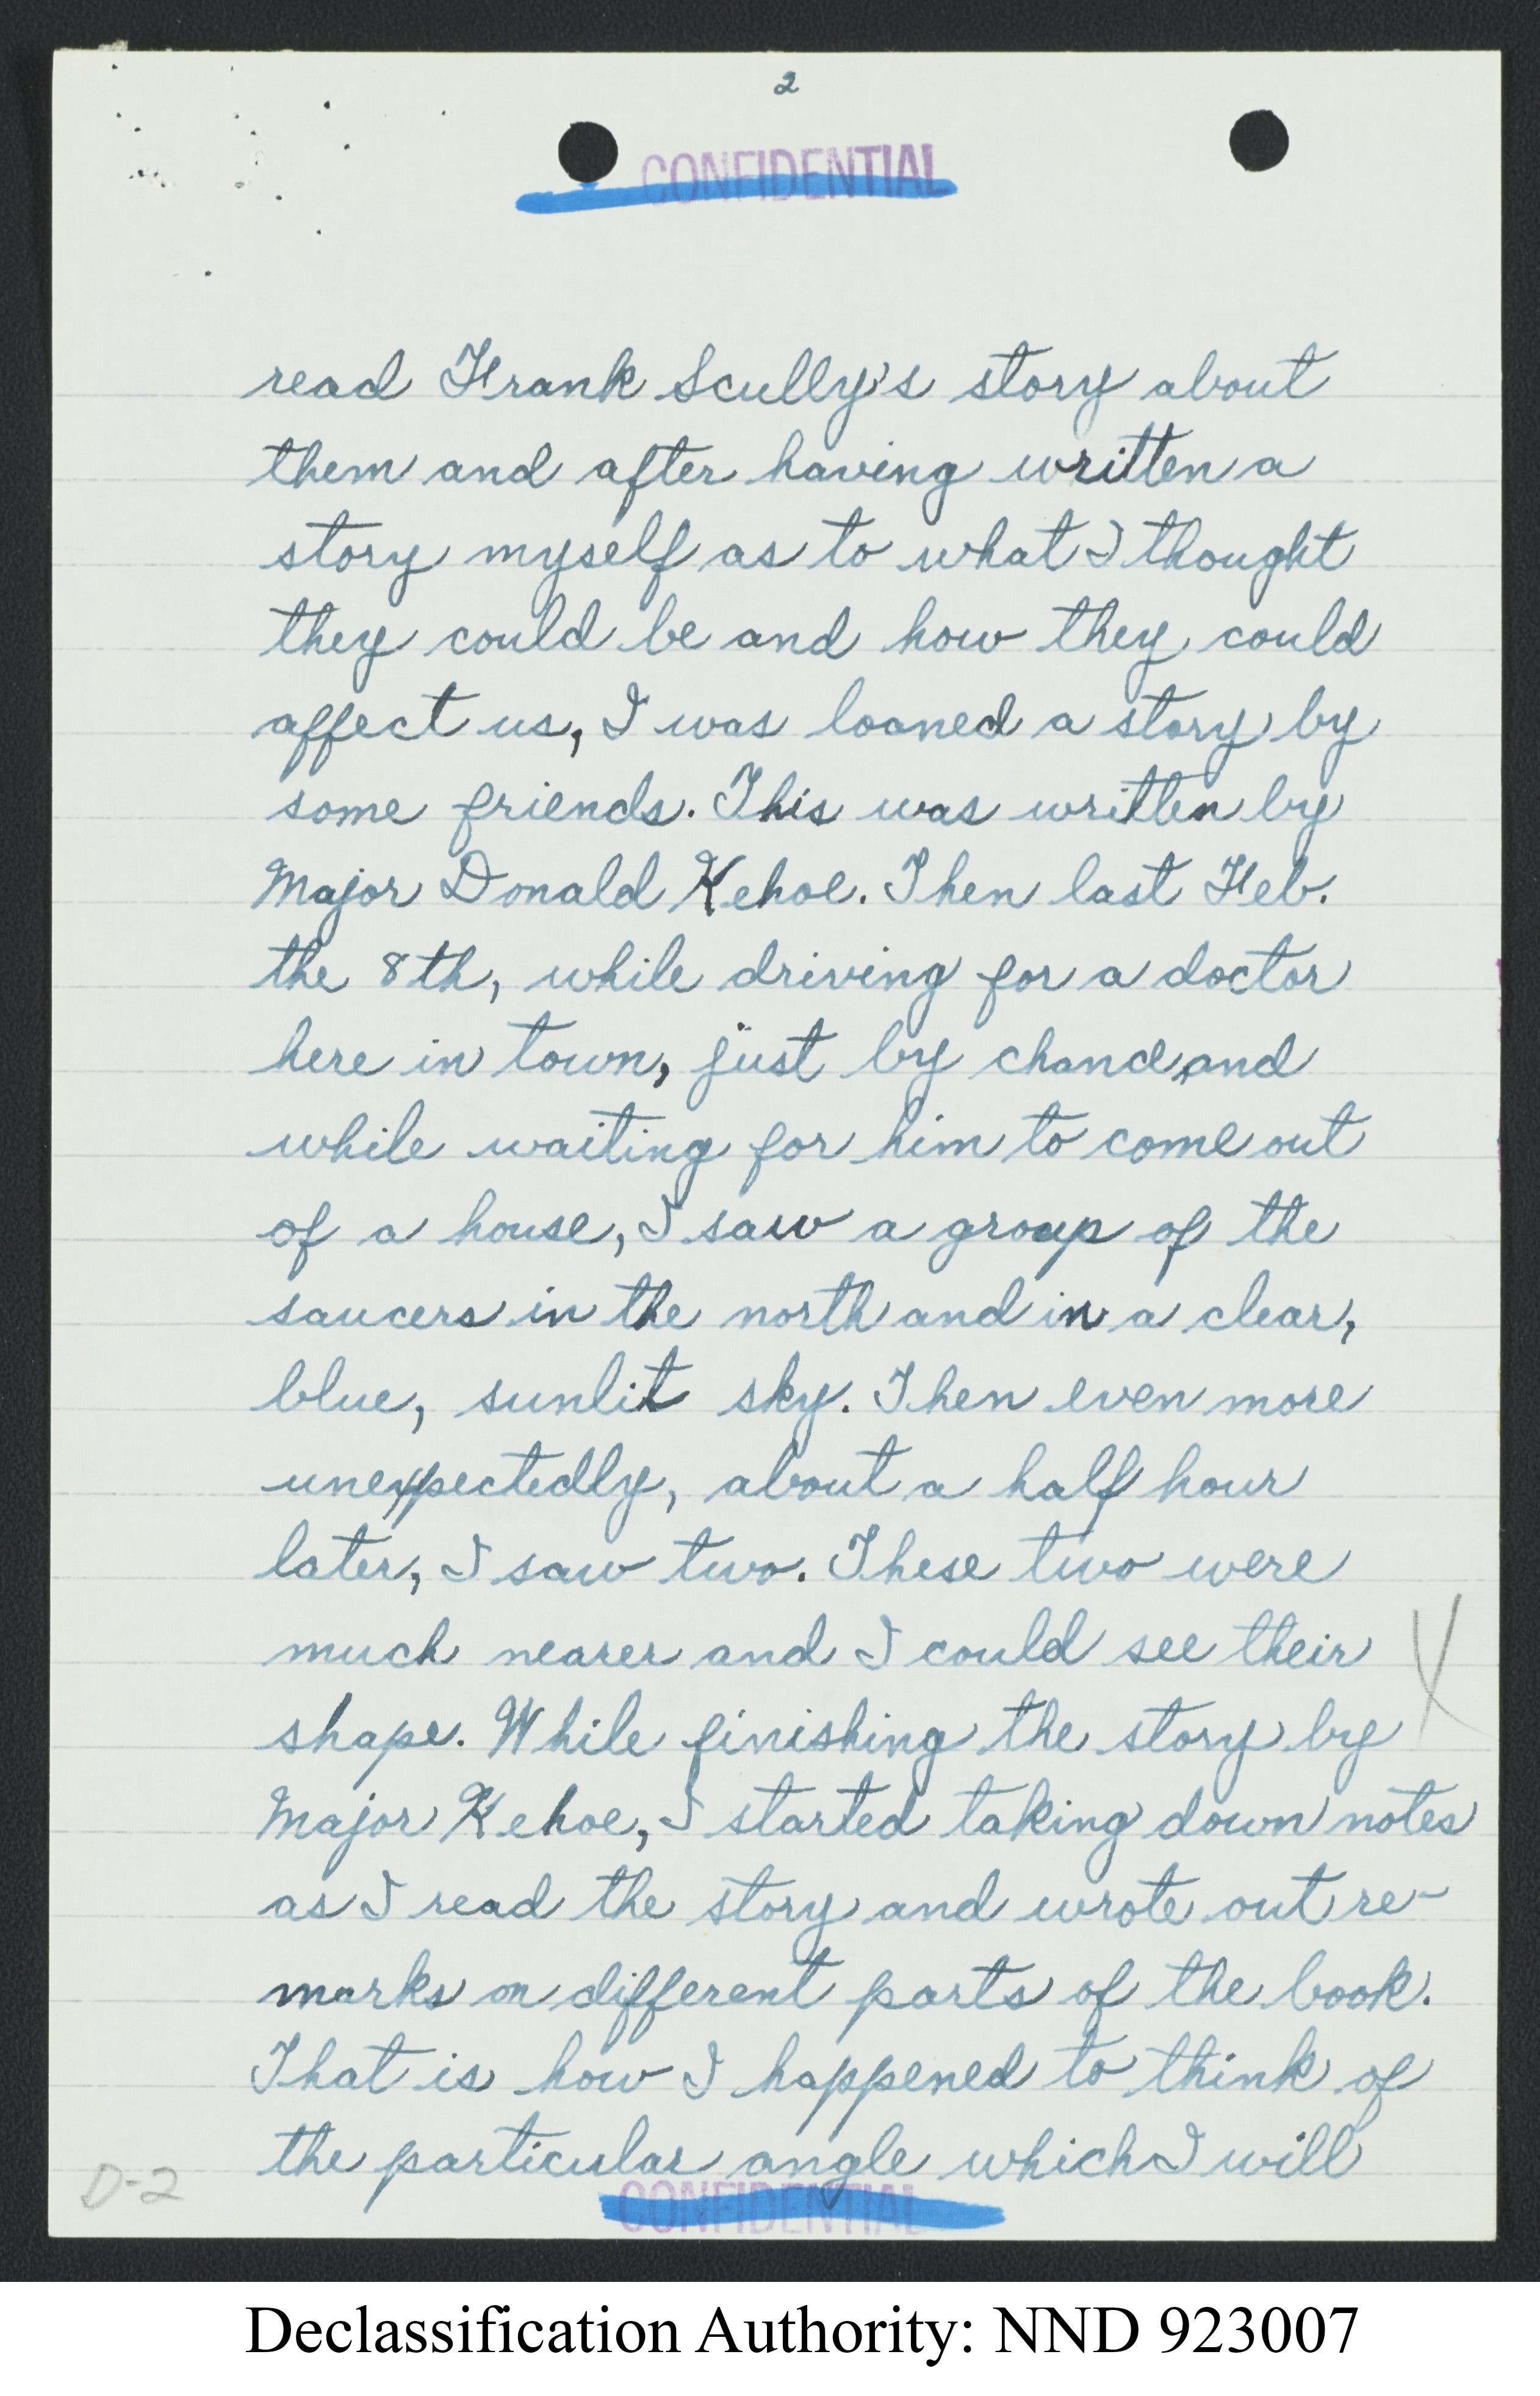 2
CONFIDENTIAL
read Frank Scully's story about
them and after having written a
story myself as to what I thought
they could be and how they could
affect us, I was loaned a story by
some friends. This was written by
Major Donald Kehoe. Then last Feb.
the 8th, while driving for a doctor
here in town, just by chance and
while waiting for him to come out
of a house, I saw a group of the
saucers in the north and in a clear,
blue, sunlit sky. Then even more
unexpectedly, about a half hour
later, I saw two. These two were
much nearer and I could see their
shape. While finishing the story by
Major Kehoe, I started taking down notes
as I read the story and wrote out re-
marks on different parts of the book.
That is how I happened to think of
the particular angle which I will
D-2
CONFIDENTIAL
Declassification Authority: NND 923007